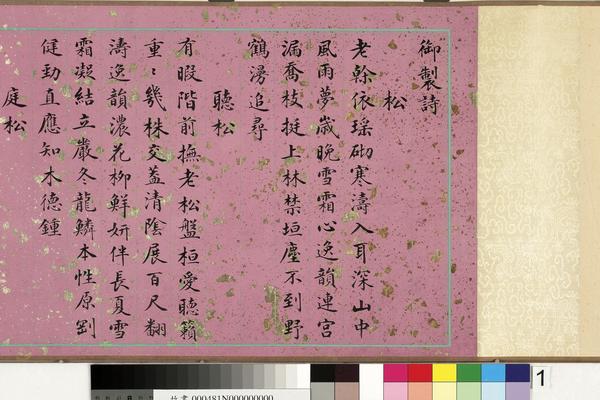 御製詩
松
老幹依瑶砌寒濤入耳深山中
風雨夢歲晚雪霜心逸韻連宮
漏喬枝挺上林禁垣塵不到野
鶴漫追尋
聽松
有暇階前撫老松盤桓愛聽籟
重〻幾株交蓋清陰展百尺翻
濤逸韻濃花柳鮮妍伴長夏雪
霜凝結立嚴冬龍鱗本性原剛
健勁直應知木德鍾
庭松
1
竹書 000481N000000000